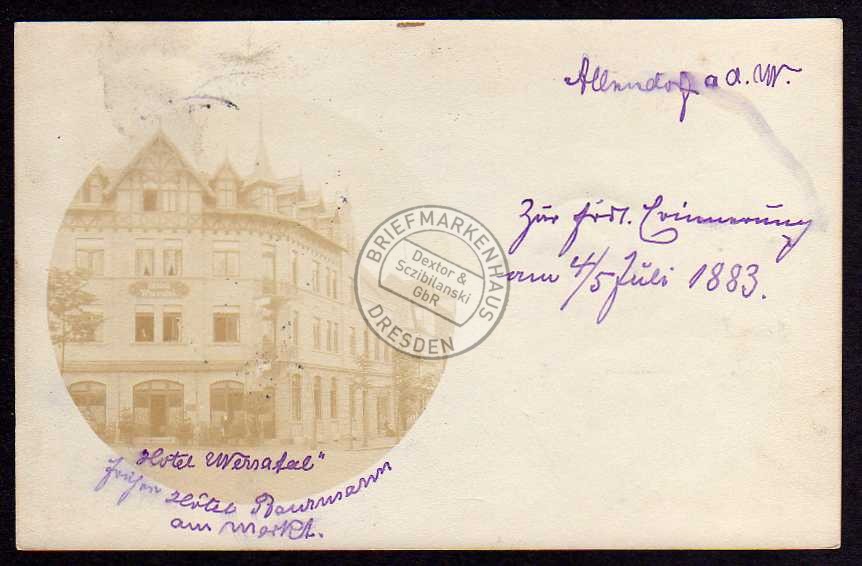 Allendorf a d. W.
Zur frdl. Erinnerung
am 4/5 Juli 1883.
BRIEFMARKENHAUS
Dextor &
Sczibilanski
GbR
DRESDEN
"Hotel Werratal"
früher Hôtel Baurmann
am Markt.